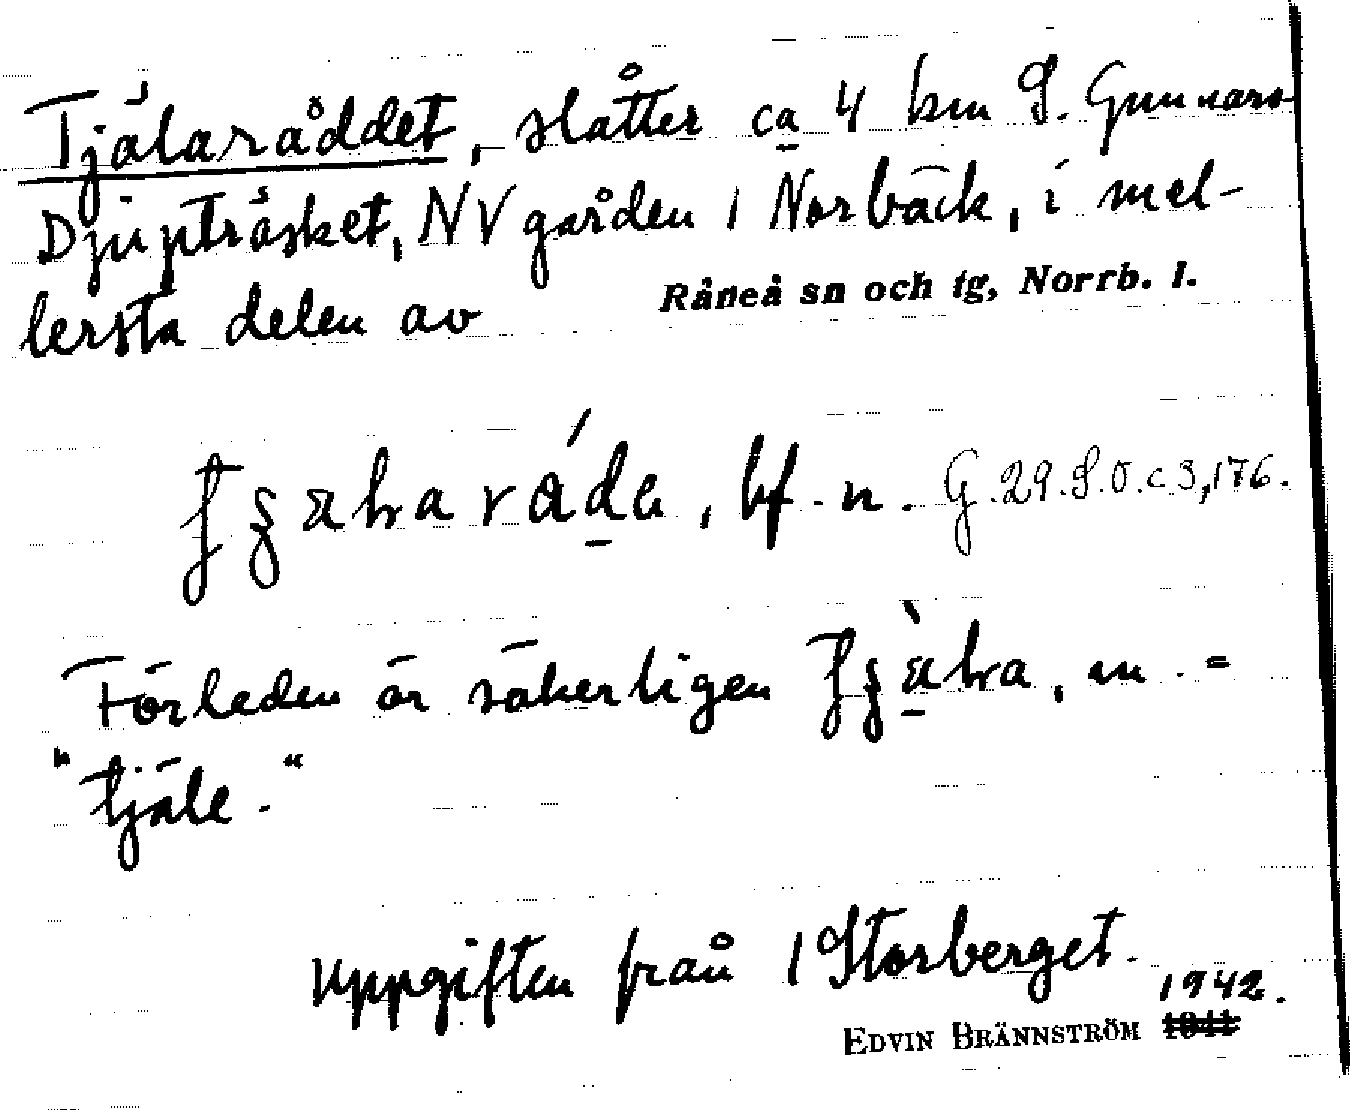 Tjälaråddet, slåtter ca 4 km S. Gunnars-
Djupträsket, NV gården 1 Norbäck, i mel-
lersta delen av
Råneå sn och tg, Norrb. l.
bf. n. G. 29. S. O. c 3, 176.
Förleden är säkerligen m. =
"tjäle."
Uppgiften från 1 Storberget.
1942.
EDVIN BRÄNNSTRÖM 1941